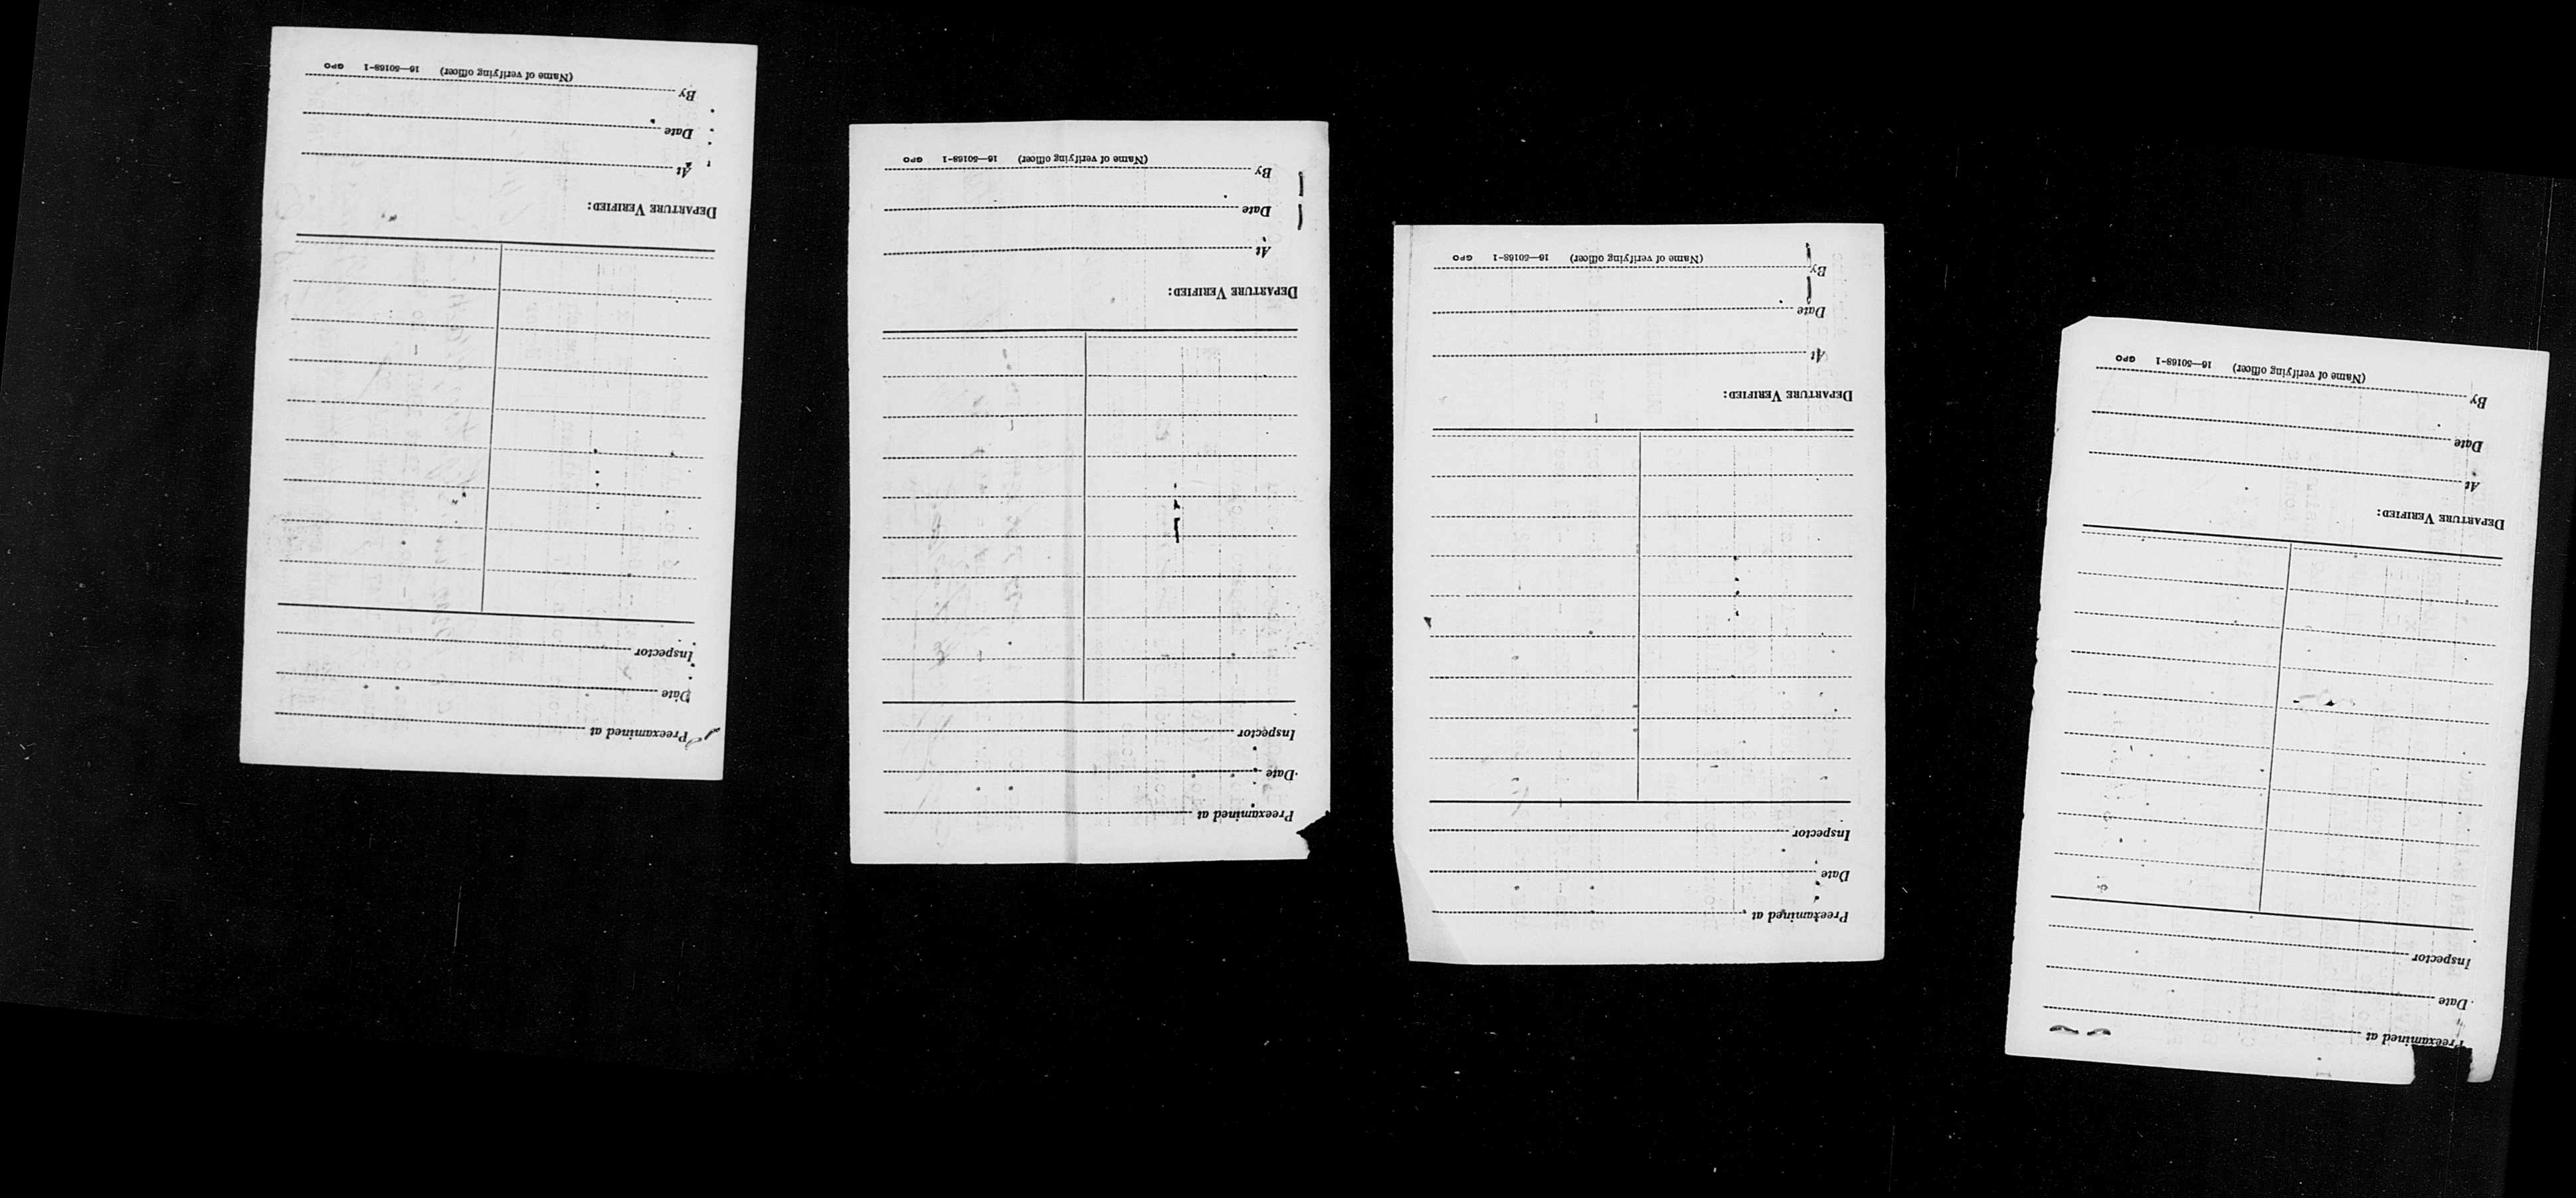 Preexamined at
Date
Inspector
DEPARTURE VERIFIED:
At
Date
By
(Name of verifying officer) 16—50168-1 GPO
Preexamined at
Date
Inspector
DEPARTURE VERIFIED:
At
Date
By
(Name of verifying officer) 16—50168-1 GPO
Preexamined at
Date
Inspector
DEPARTURE VERIFIED:
At
Date
By
(Name of verifying officer) 16—50168-1 GPO
Preexamined at
Date
Inspector
DEPARTURE VERIFIED:
At
Date
By
(Name of verifying officer) 16—50168-1 GPO